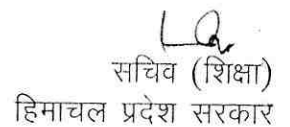 सचिव (शिक्षा)
हिमाचल प्रदेश सरकार